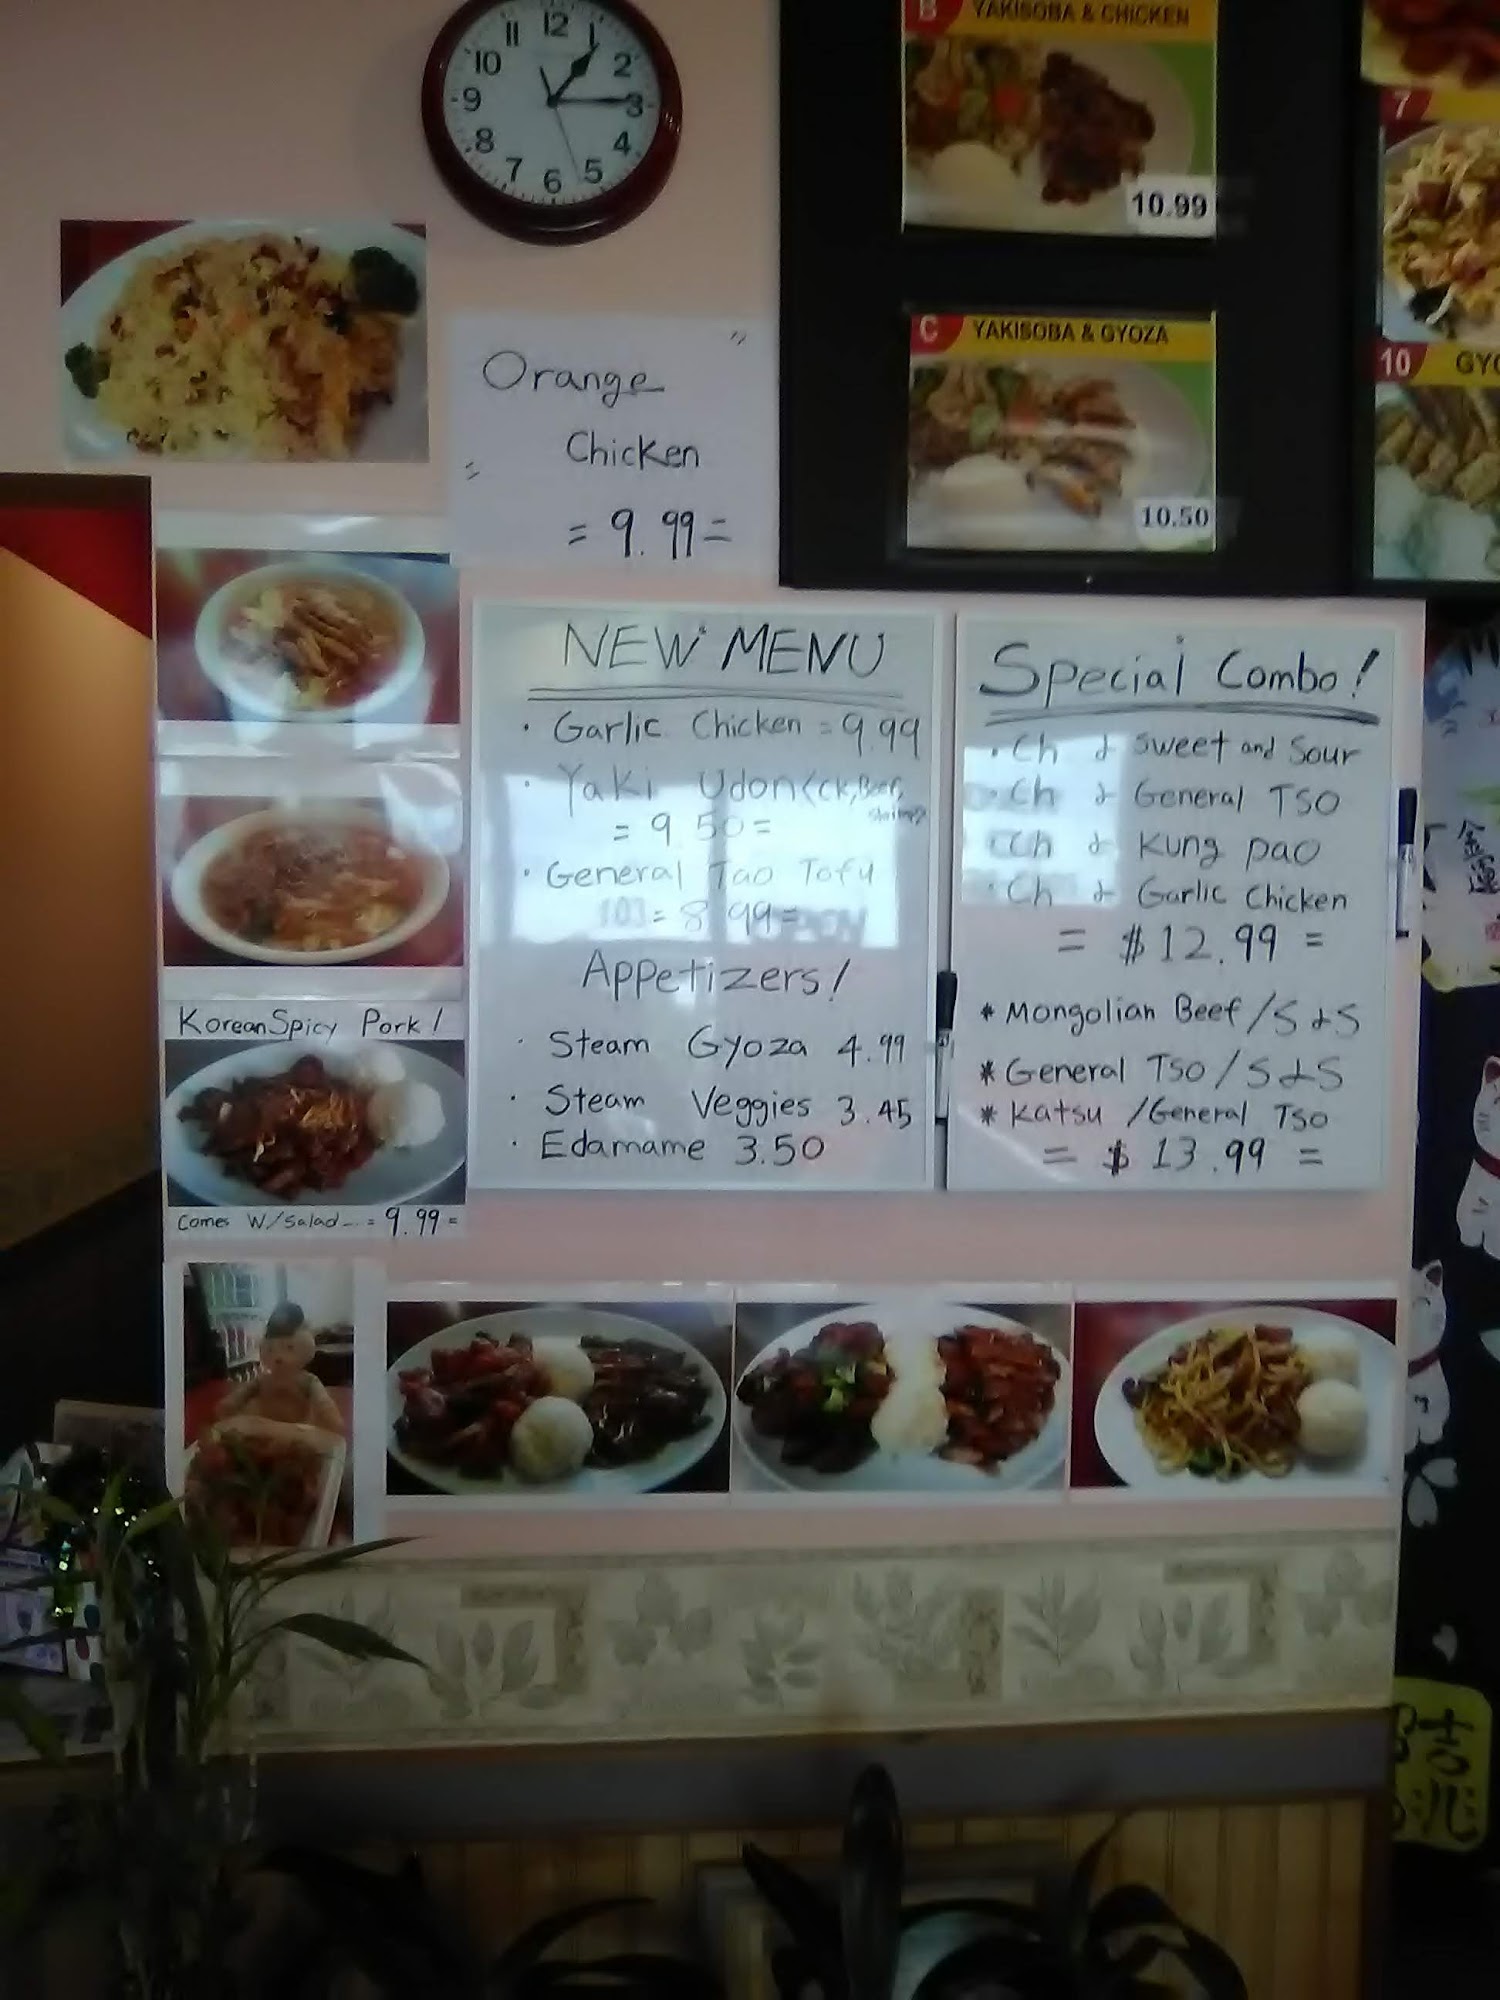 12
11 1
10 2
9 3
8 4
7 5
6
B YAKISOBA & CHICKEN
10.99
7
Orange
Chicken
= 9.99 =
C YAKISOBA & GYOZA
10.50
10
NEW MENU
· Garlic Chicken = 9.99
· Yaki Udon <CK, Beef,
= 9.50 =
· General Tao Tofu
= 8.99 =
Appetizers!
· Steam Gyoza 4.99
· Steam Veggies 3.45
· Edamame 3.50
Special Combo!
· Ch & Sweet and Sour
· Ch & General TSO
· Ch & Kung pao
· Ch & Garlic Chicken
= $12.99 =
* Mongolian Beef / S & S
* General TSO / S & S
* Katsu / General TSO
= $13.99 =
Korean Spicy Pork!
Comes W/Salad... = 9.99 =
金運
吉